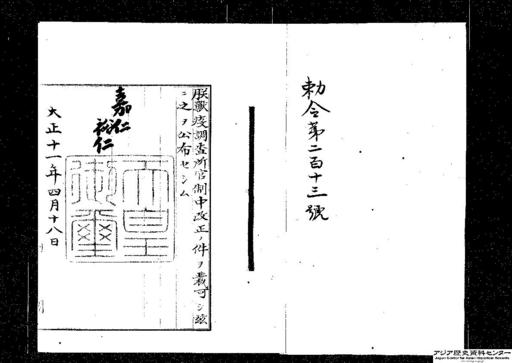 勅令第二百十三號
朕獸疫調查所官制中改正ノ件ヲ裁可シ茲
ニ之ヲ公布セシム
嘉仁
裕仁
天皇
御璽
大正十一年四月十八日
アジア歴史資料センター
Japan Center for Asian Historical Records